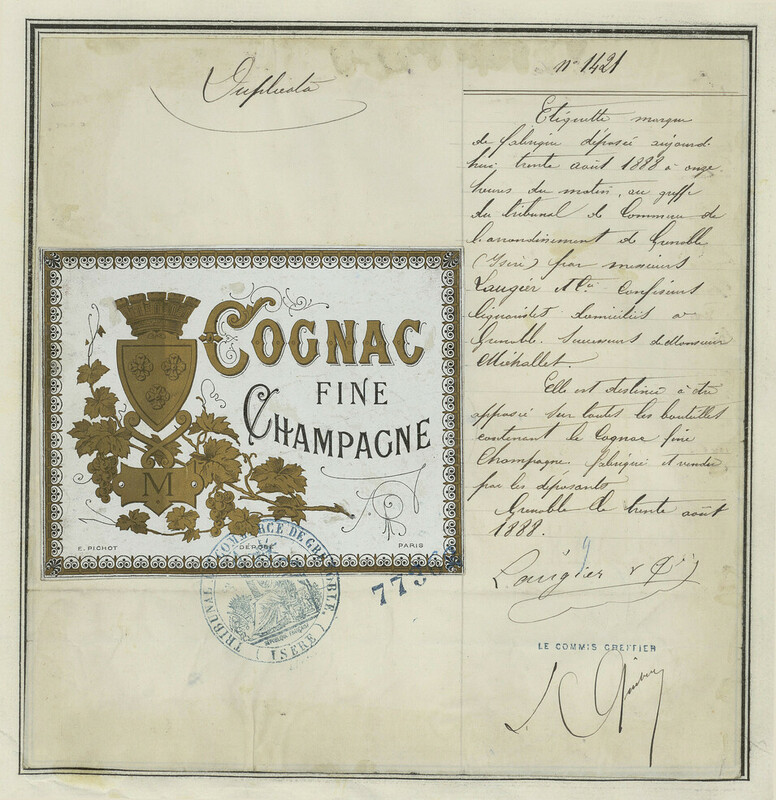 Duplicata
n° 1421
Etiquette marque
de fabrique déposée aujourd
hui trente août 1888 à onze
heures du matin, au greffe
du tribunal de Commerce de
l'arrondissement de Grenoble
(Isère) par messieurs
Laugier & Cie Confiseurs
liquoristes domiciliés à
Grenoble. Successeurs de Monsieur
Michallet.
Elle est destinée à être
apposée sur toutes les bouteilles
contenant le Cognac fine
Champagne. fabriqué et vendu
par les déposants
Grenoble le trente août
1888.
Laugier & Cie
LE COMMIS GREFFIER
COGNAC
FINE
CHAMPAGNE
M
E. PICHOT
DÉPOSÉ
PARIS
TRIBUNAL DE COMMERCE DE GRENOBLE
(ISÈRE)